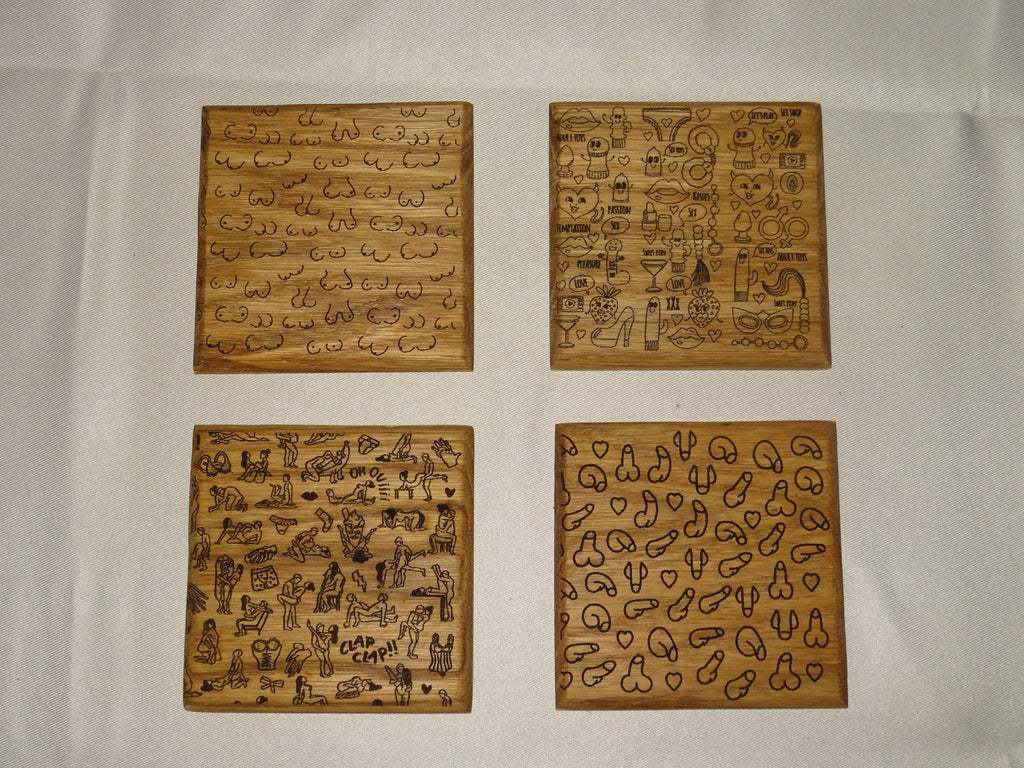 LET'S PLAY
SEX SHOP
ADULT TOYS
SEX TOYS
KISSES
PASSION
SEX
TEMPTATION
SEX
SEX TOYS
ADULT TOYS
PLEASURE
LOVE
LOVE
XXX
OH OUI
CLAP
CLAP!!